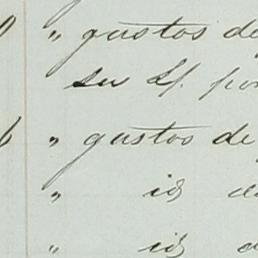 " gastos de
su Sf. por
6 " gastos de
" id d
" id d